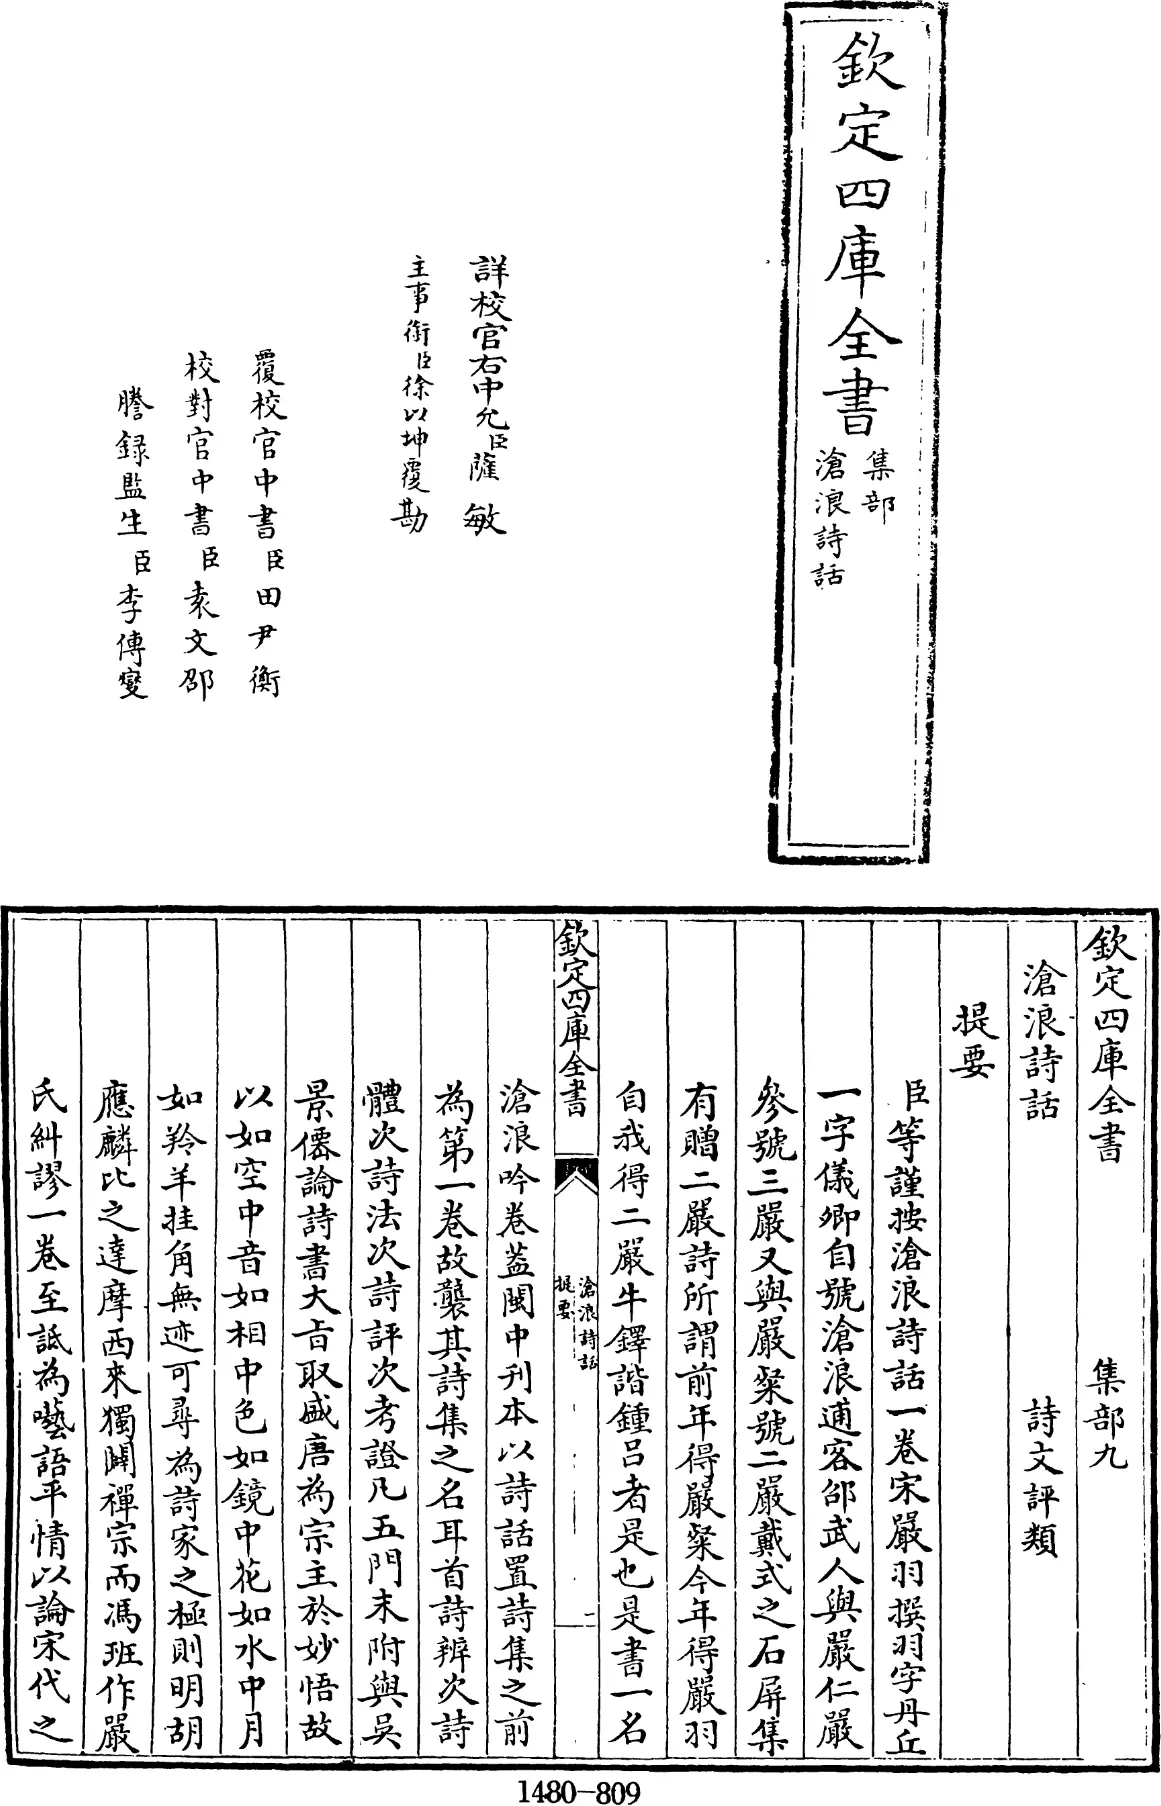 欽定四庫全書
集部
滄浪詩話
詳校官右中允臣薩敏
主事銜臣徐以坤覆勘
覆校官中書臣田尹衡
校對官中書臣袁文邵
謄錄監生臣李傳夔
欽定四庫全書 集部九
滄浪詩話 詩文評類
提要
臣等謹按滄浪詩話一卷宋嚴羽撰羽字丹丘
一字儀卿自號滄浪逋客邵武人與嚴仁嚴
參號三嚴又與嚴粲號二嚴戴式之石屏集
有贈二嚴詩所謂前年得嚴粲今年得嚴羽
自我得二嚴牛鐸諧鍾呂者是也是書一名
欽定四庫全書
滄浪詩話
提要
二
滄浪吟卷葢閩中刋本以詩話置詩集之前
為第一卷故襲其詩集之名耳首詩辨次詩
體次詩法次詩評次考證凡五門末附與吳
景僊論詩書大㫖取盛唐為宗主於妙悟故
以如空中音如相中色如鏡中花如水中月
如羚羊挂角無迹可尋為詩家之極則明胡
應麟比之達摩西來獨闢禪宗而馮班作嚴
氏糾謬一卷至詆為囈語平情以論宋代之
1480-809